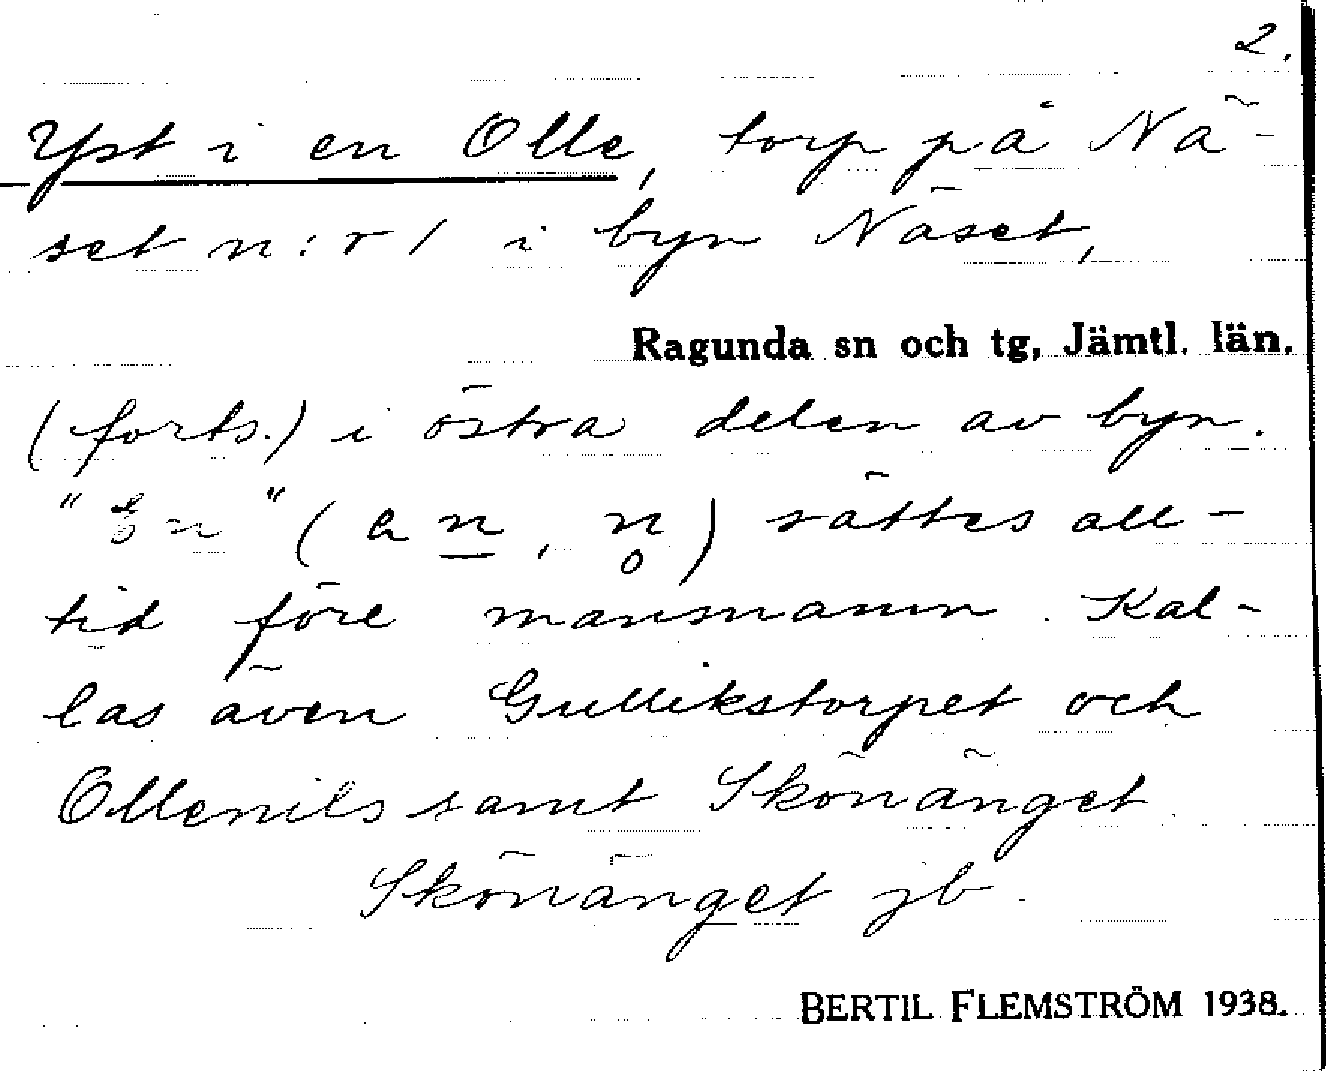 2.
Yst i en Olle, torp på Nä-
set n:r 1 i byn Näset,
Ragunda sn och tg, Jämtl. län.
(forts.) i östra delen av byn.
"En" (a n, n̥) sättes all-
tid före mansnamn. Kal-
las även Gullikstorpet och
Ollenils samt Skönänget.
Skönänget jb.
BERTIL FLEMSTRÖM 1938.